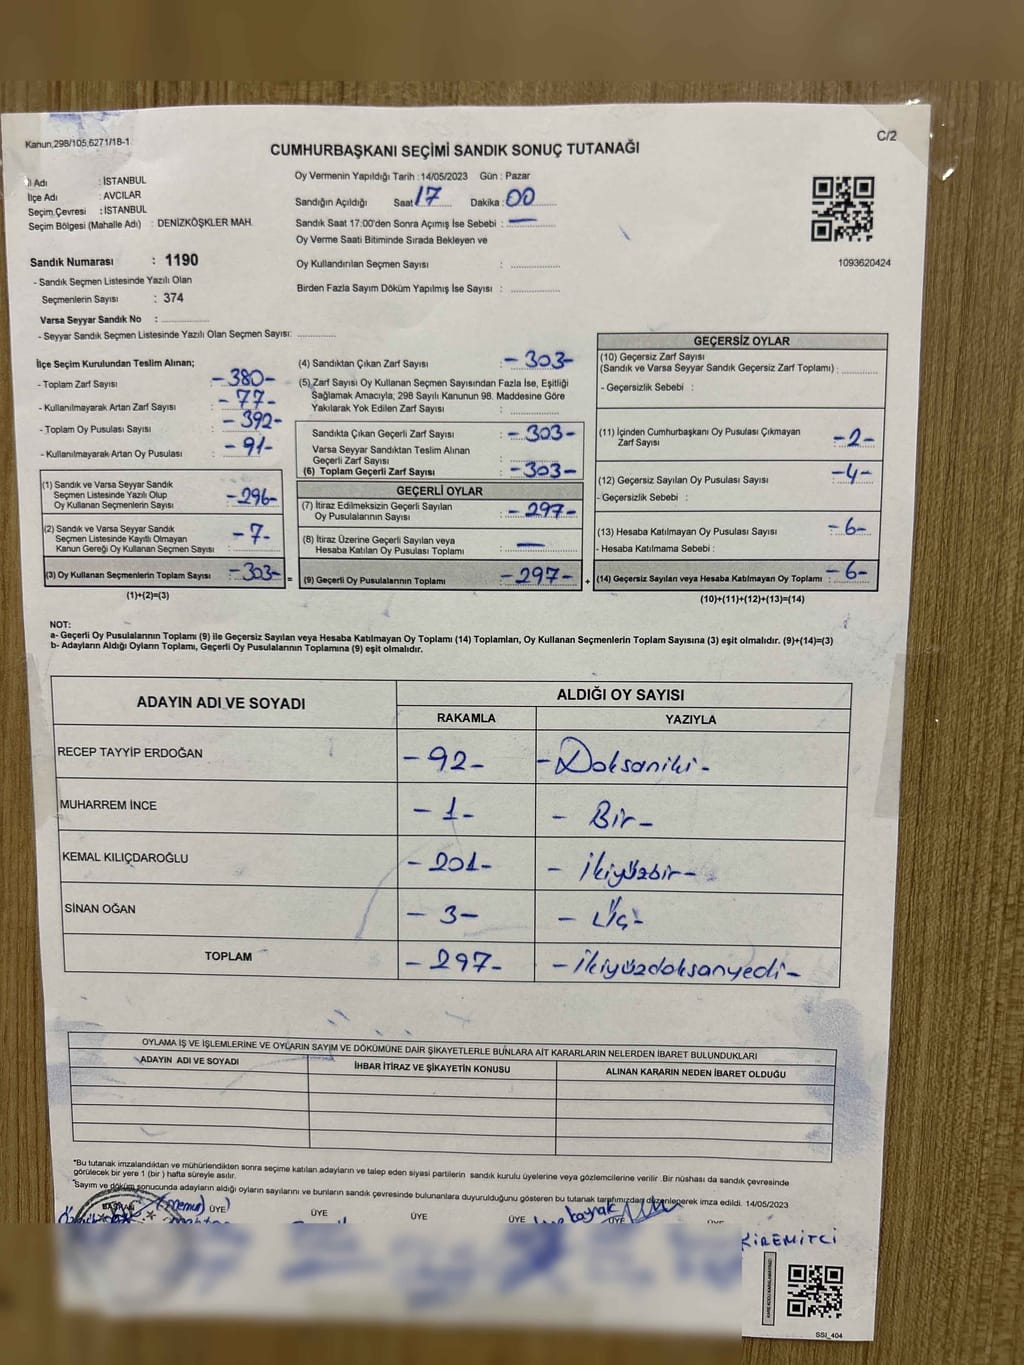 Kanun,298/105,6271/18-1
C/2
CUMHURBAŞKANI SEÇİMİ SANDIK SONUÇ TUTANAĞI
İl Adı : İSTANBUL
İlçe Adı : AVCILAR
Seçim Çevresi : İSTANBUL
Seçim Bölgesi (Mahalle Adı) : DENİZKÖŞKLER MAH.
Sandık Numarası : 1190
- Sandık Seçmen Listesinde Yazılı Olan
Seçmenlerin Sayısı : 374
Varsa Seyyar Sandık No : ..............
- Seyyar Sandık Seçmen Listesinde Yazılı Olan Seçmen Sayısı: ............
Oy Vermenin Yapıldığı Tarih : 14/05/2023 Gün : Pazar
Sandığın Açıldığı Saat : 17 Dakika : 00
Sandık Saat 17:00'den Sonra Açımış İse Sebebi : —
Oy Verme Saati Bitiminde Sırada Bekleyen ve
Oy Kullandırılan Seçmen Sayısı : ..............
Birden Fazla Sayım Döküm Yapılmış İse Sayısı : ..............
1093620424
İlçe Seçim Kurulundan Teslim Alınan;
- Toplam Zarf Sayısı : -380-
- Kullanılmayarak Artan Zarf Sayısı : -77-
- Toplam Oy Pusulası Sayısı : -392-
- Kullanılmayarak Artan Oy Pusulası : -91-
(1) Sandık ve Varsa Seyyar Sandık
Seçmen Listesinde Yazılı Olup
Oy Kullanan Seçmenlerin Sayısı : -296-
(2) Sandık ve Varsa Seyyar Sandık
Seçmen Listesinde Kayıtlı Olmayan
Kanun Gereği Oy Kullanan Seçmen Sayısı : -7-
(3) Oy Kullanan Seçmenlerin Toplam Sayısı : -303- =
(1)+(2)=(3)
(4) Sandıktan Çıkan Zarf Sayısı : -303-
(5) Zarf Sayısı Oy Kullanan Seçmen Sayısından Fazla İse, Eşitliği
Sağlamak Amacıyla, 298 Sayılı Kanunun 98. Maddesine Göre
Yakılarak Yok Edilen Zarf Sayısı : ..............
Sandıkta Çıkan Geçerli Zarf Sayısı : -303-
Varsa Seyyar Sandıktan Teslim Alınan
Geçerli Zarf Sayısı : ..............
(6) Toplam Geçerli Zarf Sayısı : -303-
GEÇERLİ OYLAR
(7) İtiraz Edilmeksizin Geçerli Sayılan
Oy Pusulalarının Sayısı : -297-
(8) İtiraz Üzerine Geçerli Sayılan veya
Hesaba Katılan Oy Pusulası Toplamı : —
(9) Geçerli Oy Pusulalarının Toplamı : -297- +
GEÇERSİZ OYLAR
(10) Geçersiz Zarf Sayısı
(Sandık ve Varsa Seyyar Sandık Geçersiz Zarf Toplamı) : ............
- Geçersizlik Sebebi :
(11) İçinden Cumhurbaşkanı Oy Pusulası Çıkmayan
Zarf Sayısı : -2-
(12) Geçersiz Sayılan Oy Pusulası Sayısı : -4-
- Geçersizlik Sebebi :
(13) Hesaba Katılmayan Oy Pusulası Sayısı : -6-
- Hesaba Katılmama Sebebi :
(14) Geçersiz Sayılan veya Hesaba Katılmayan Oy Toplamı : -6-
(10)+(11)+(12)+(13)=(14)
NOT:
a- Geçerli Oy Pusulalarının Toplamı (9) ile Geçersiz Sayılan veya Hesaba Katılmayan Oy Toplamı (14) Toplamları, Oy Kullanan Seçmenlerin Toplam Sayısına (3) eşit olmalıdır. (9)+(14)=(3)
b- Adayların Aldığı Oyların Toplamı, Geçerli Oy Pusulalarının Toplamına (9) eşit olmalıdır.
ADAYIN ADI VE SOYADI ALDIĞI OY SAYISI
RAKAMLA YAZIYLA
RECEP TAYYİP ERDOĞAN -92- -Doksaniki-
MUHARREM İNCE -1- -Bir-
KEMAL KILIÇDAROĞLU -201- -İkiyüzbir-
SİNAN OĞAN -3- -Üç-
TOPLAM -297- -İkiyüzdoksanyedi-
OYLAMA İŞ VE İŞLEMLERİNE VE OYLARIN SAYIM VE DÖKÜMÜNE DAİR ŞİKAYETLERLE BUNLARA AİT KARARLARIN NELERDEN İBARET BULUNDUKLARI
ADAYIN ADI VE SOYADI İHBAR İTİRAZ VE ŞİKAYETİN KONUSU ALINAN KARARIN NEDEN İBARET OLDUĞU
*Bu tutanak imzalandıktan ve mühürlendikten sonra seçime katılan adayların ve talep eden siyasi partilerin sandık kurulu üyelerine veya gözlemcilerine verilir .Bir nüshası da sandık çevresinde
görülecek bir yere 1 (bir ) hafta süreyle asılır.
*Sayım ve döküm sonucunda adayların aldığı oyların sayılarını ve bunların sandık çevresinde bulunanlara duyurulduğunu gösteren bu tutanak tarafımızdan düzenlenerek imza edildi. 14/05/2023
BAŞKAN (memur) ÜYE ÜYE ÜYE ÜYE ÜYE
bayrak
KİREMİTCİ
SSI_404